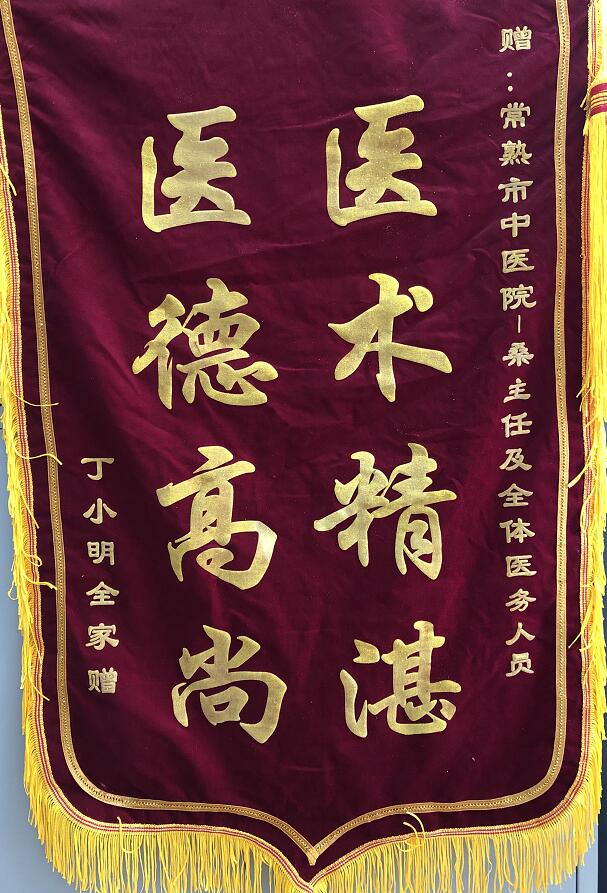 赠：常熟市中医院－桑主任及全体医务人员
医术精湛
医德高尚
丁小明全家赠